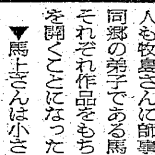 人も牧島さんに師事
同郷の弟子である馬
それぞれ作品をもち
を開くことになった
▼馬上さんは小さ